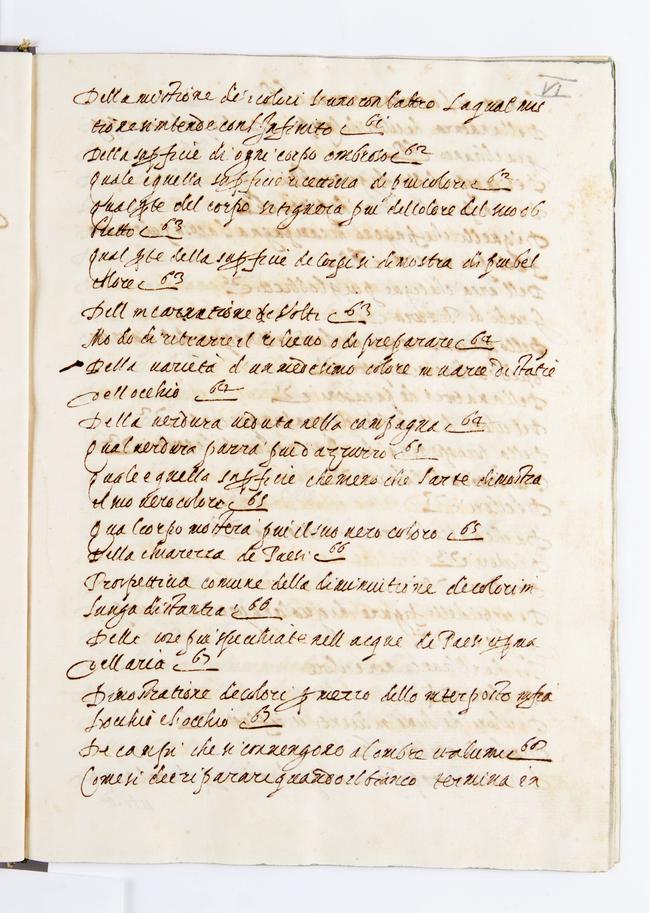 VI
Della mistione de colori l'uno con l'altro la qual mis
tione s'intende con l'infinito 61
Della supficie di ogni corpo ombroso 62
Quale e quella supficie ricettiva di piu colori 62
Qual pte del corpo si tignera piu del colore del suo ob
bietto 63
Qual pte della supficie de corpi si dimostra di piu bel
colore 63
Dell incarnatione de volti 63
Modo di ritrarre il rilievo o di preparare 64
Della varietà d'un medesimo colore in varie distatie
dell occhio 64
Della verdura veduta nella campagna 64
Qual verdura parra piu d'azzurro 65
Quale e quella supficie che meno che l'arte dimostra
il suo vero colore 65
Qual corpo mostera piu il suo vero coloro 65
Della chiarezza de Paesi 66
Prospettiva comune della diminuitione de colori in
lunga distantia 66
Delle cose piu specchiate nell acque de Paesi et pma
dell aria 67
Dimostratione de colori p mezzo dello interposto infra
l'occhio e l'occhio 67
De campi che si convengono a l'ombre et a lumi 68
Come si dee riparare quando il bianco termina in